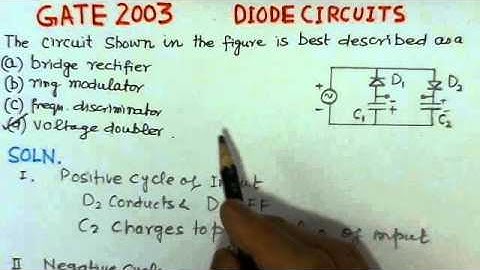 GATE 2003 DIODE CIRCUITS
The circuit shown in the figure is best described as a
(a) bridge rectifier
(b) ring modulator
(c) frequ. discriminator
(d) voltage doubler.
D1 D2
+ - + + -
- + -
C1 C2
SOLN.
I. Positive Cycle of Input
D2 Conducts & D FF
C2 Charges to of input
II Negative Cycle